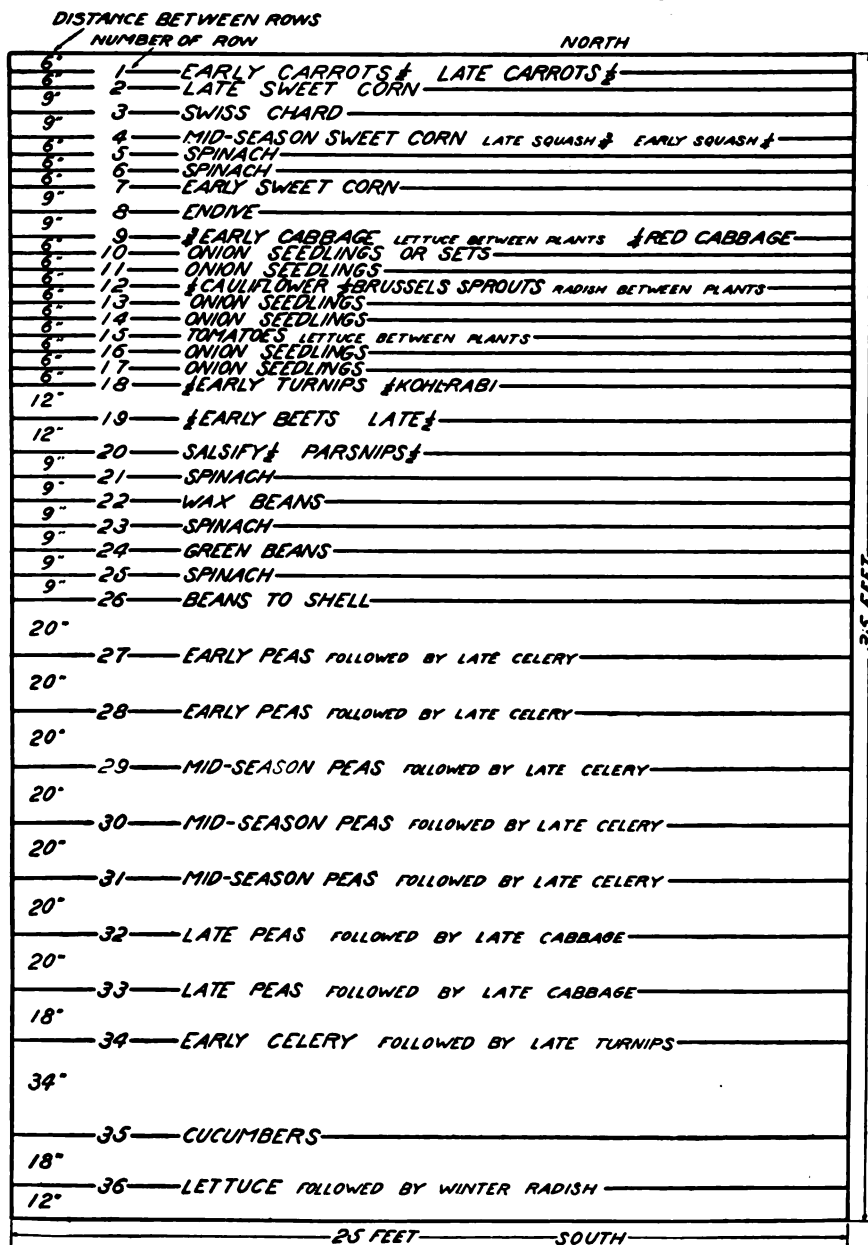 DISTANCE BETWEEN ROWS
NUMBER OF ROW
NORTH
6"
1 EARLY CARROTS ½ LATE CARROTS ½
6"
2 LATE SWEET CORN
9"
3 SWISS CHARD
9"
4 MID-SEASON SWEET CORN LATE SQUASH EARLY SQUASH
6"
5 SPINACH
6"
6 SPINACH
6"
7 EARLY SWEET CORN
9"
8 ENDIVE
9"
9 EARLY CABBAGE LETTUCE BETWEEN PLANTS RED CABBAGE
6"
10 ONION SEEDLINGS OR SETS
6"
11 ONION SEEDLINGS
6"
12 ½ CAULIFLOWER ½ BRUSSELS SPROUTS RADISH BETWEEN PLANTS
6"
13 ONION SEEDLINGS
6"
14 ONION SEEDLINGS
6"
15 TOMATOES LETTUCE BETWEEN PLANTS
6"
16 ONION SEEDLINGS
6"
17 ONION SEEDLINGS
6"
18 ½ EARLY TURNIPS ½ KOHL-RABI
12"
19 ½ EARLY BEETS LATE ½
12"
20 SALSIFY ½ PARSNIPS ½
9"
21 SPINACH
9"
22 WAX BEANS
9"
23 SPINACH
9"
24 GREEN BEANS
9"
25 SPINACH
9"
26 BEANS TO SHELL
20"
27 EARLY PEAS FOLLOWED BY LATE CELERY
20"
28 EARLY PEAS FOLLOWED BY LATE CELERY
20"
29 MID-SEASON PEAS FOLLOWED BY LATE CELERY
20"
30 MID-SEASON PEAS FOLLOWED BY LATE CELERY
20"
31 MID-SEASON PEAS FOLLOWED BY LATE CELERY
20"
32 LATE PEAS FOLLOWED BY LATE CABBAGE
20"
33 LATE PEAS FOLLOWED BY LATE CABBAGE
18"
34 EARLY CELERY FOLLOWED BY LATE TURNIPS
34"
35 CUCUMBERS
18"
36 LETTUCE FOLLOWED BY WINTER RADISH
12"
25 FEET
SOUTH
25 FEET